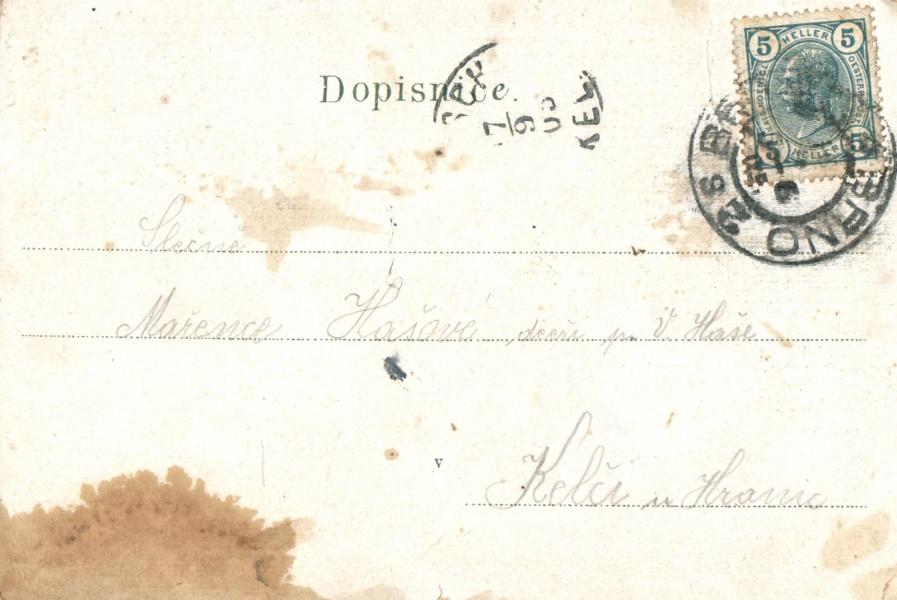 5 HELLER 5
5 HELLER 5
Dopisnice
7/9 03
BRNO
Slečne
Mařence Hašové, dceři p. V. Haše
v
Kelči u Hranic